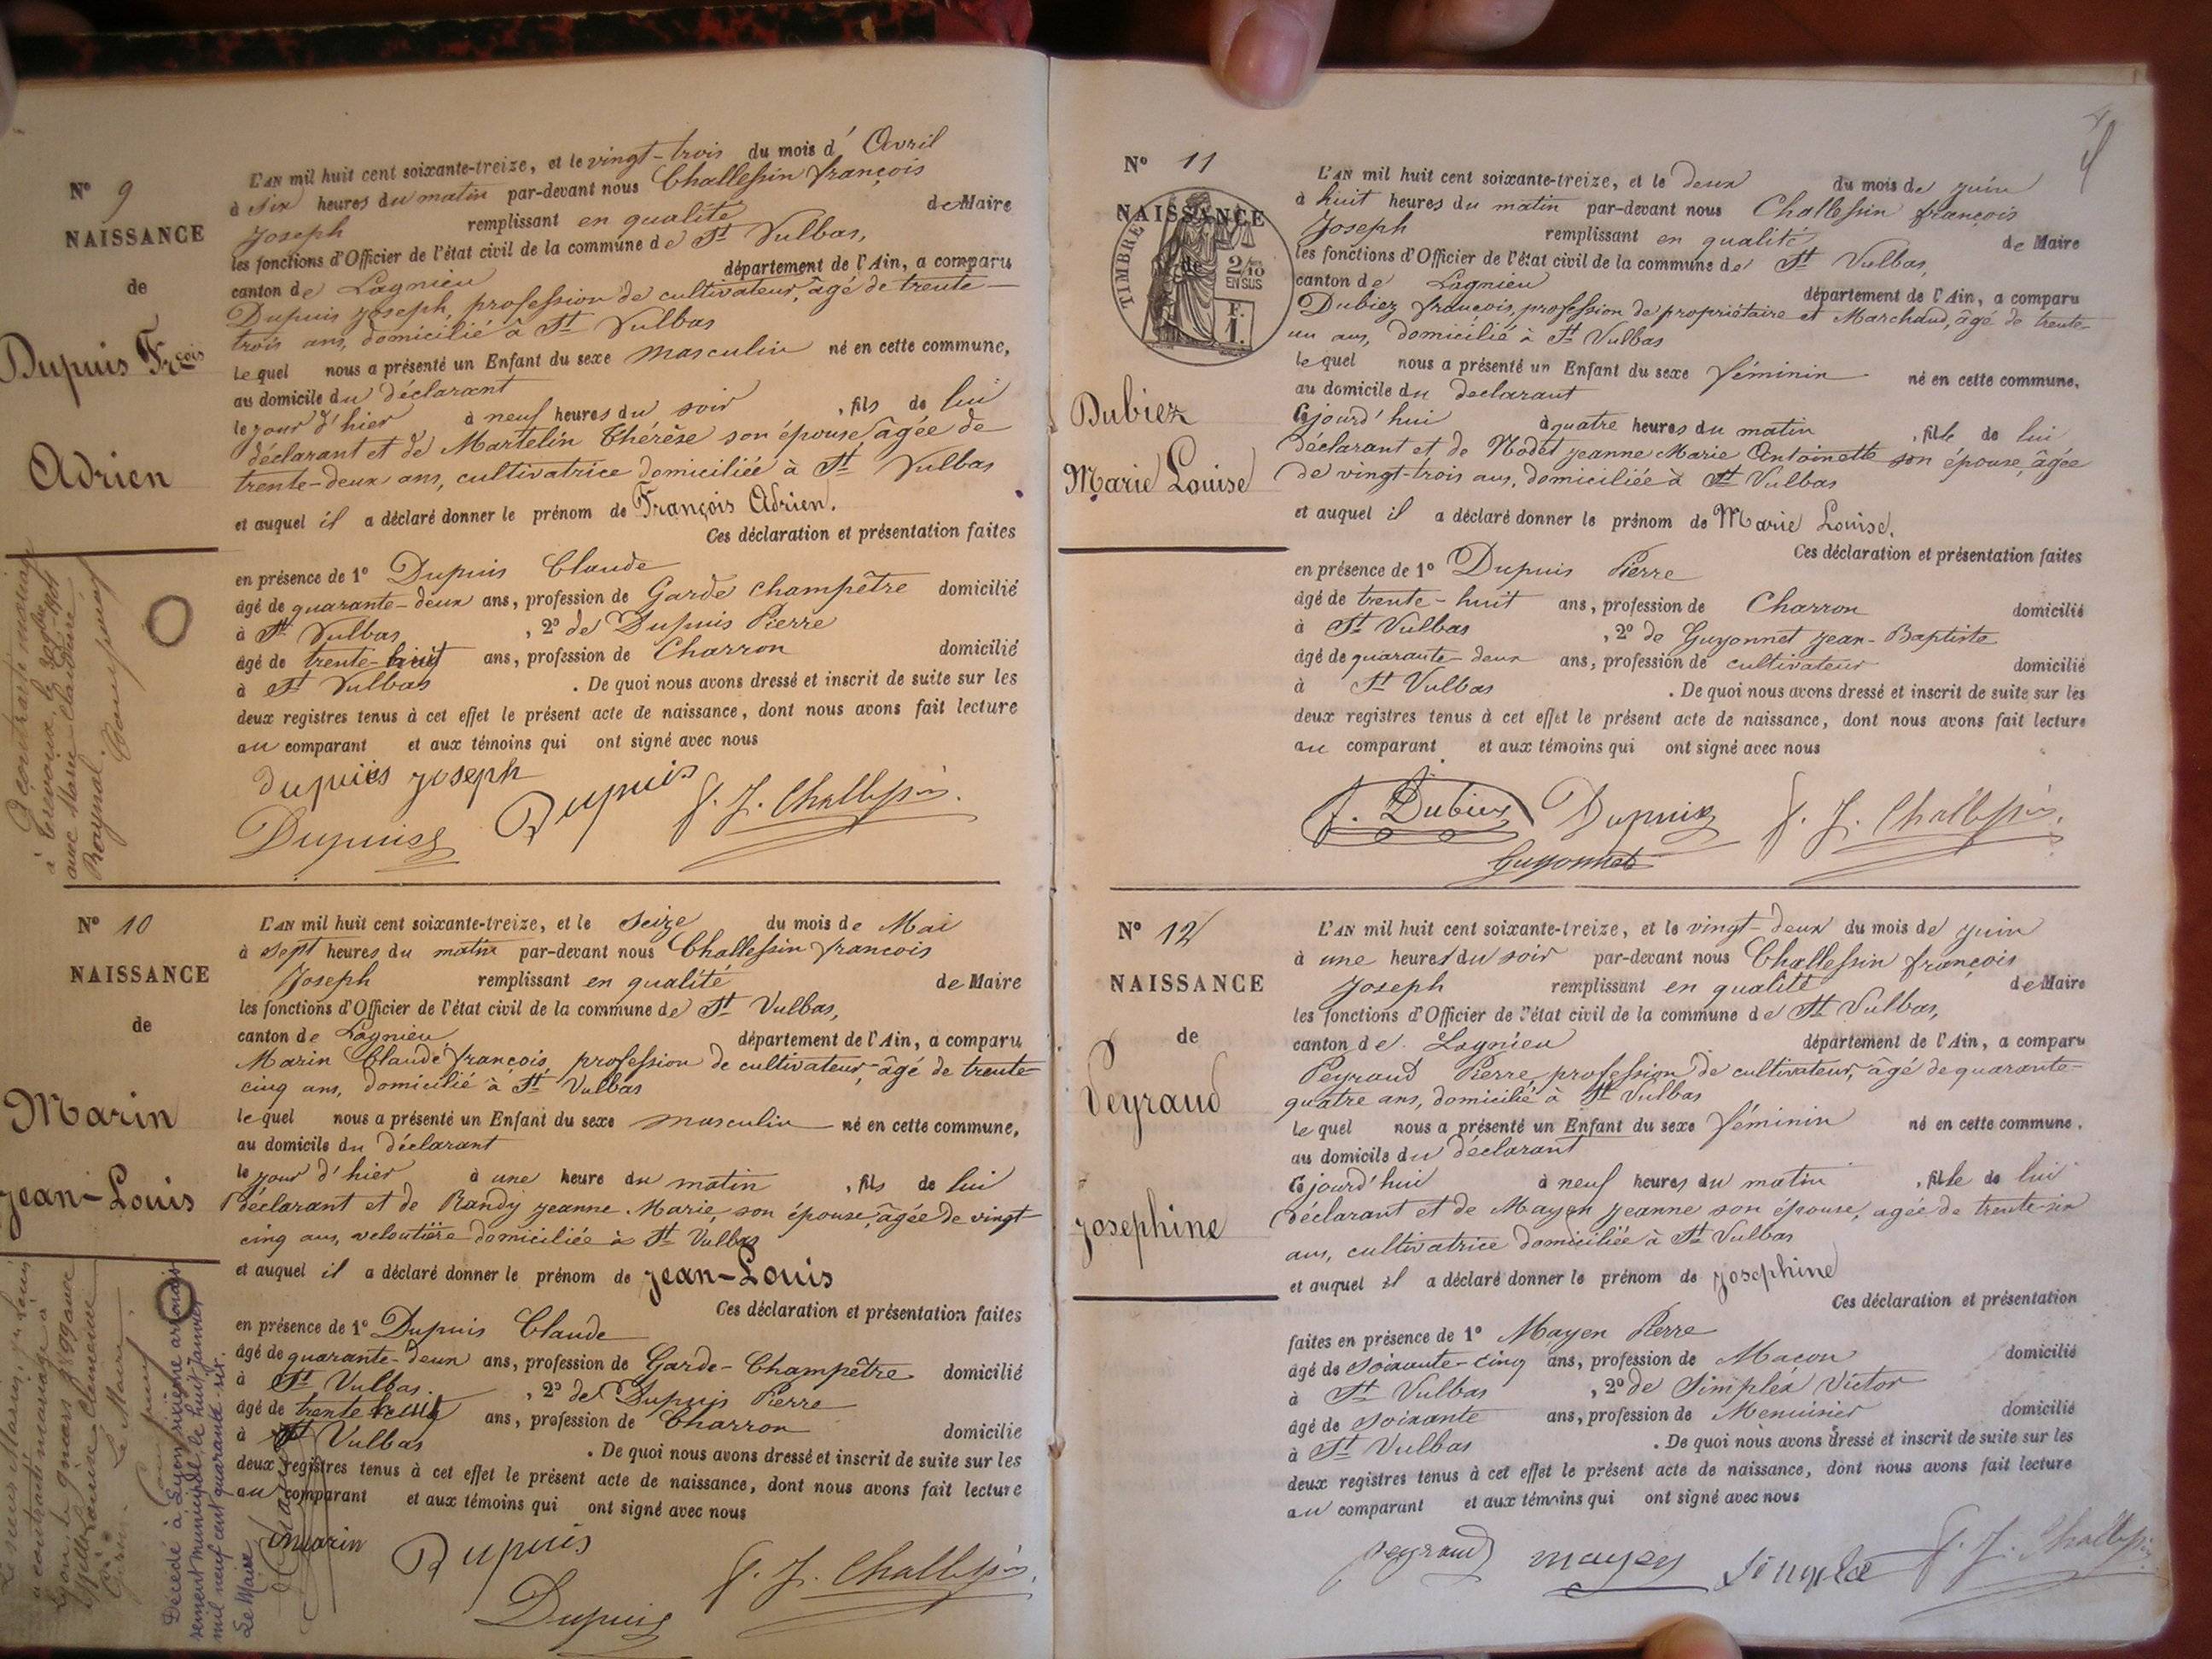 N° 9
NAISSANCE
de
Dupuis Fçois
Adrien
L'AN mil huit cent soixante-treize, et le vingt-trois du mois d'Avril
à six heures du matin par-devant nous Challessin françois
Joseph remplissant en qualité de Maire
les fonctions d'Officier de l'état civil de la commune de St Vulbas,
canton de Lagnieu département de l'Ain, a comparu
Dupuis Joseph, profession de cultivateur, âgé de trente-
trois ans, domicilié à St Vulbas
lequel nous a présenté un Enfant du sexe masculin né en cette commune,
au domicile du déclarant
le jour d'hier à neuf heures du soir, fils de lui
déclarant et de Martelin Thérèse son épouse, âgée de
trente-deux ans, cultivatrice domiciliée à St Vulbas
et auquel il a déclaré donner le prénom de François Adrien.
Ces déclaration et présentation faites
en présence de 1° Dupuis Claude
âgé de quarante-deux ans, profession de Garde champêtre domicilié
à St Vulbas, 2° de Dupuis Pierre
âgé de trente-huit ans, profession de Charron domicilié
à St Vulbas. De quoi nous avons dressé et inscrit de suite sur les
deux registres tenus à cet effet le présent acte de naissance, dont nous avons fait lecture
au comparant et aux témoins qui ont signé avec nous
dupuis joseph Dupuis F. J. Challessin.
Dupuis
à Trévoux, le
avec Marie Claudine
Raynal.
N° 10
NAISSANCE
de
Marin
Jean-Louis
L'AN mil huit cent soixante-treize, et le seize du mois de Mai
à sept heures du matin par-devant nous Challessin francois
Joseph remplissant en qualité de Maire
les fonctions d'Officier de l'état civil de la commune de St Vulbas,
canton de Lagnieu département de l'Ain, a comparu
Marin Claude françois, profession de cultivateur, âgé de trente-
cinq ans, domicilié à St Vulbas
lequel nous a présenté un Enfant du sexe masculin né en cette commune,
au domicile du déclarant
le jour d'hier à une heure du matin, fils de lui
déclarant et de Randy jeanne Marie, son épouse, âgée de vingt-
cinq ans, veloutière domiciliée à St Vulbas
et auquel il a déclaré donner le prénom de Jean-Louis
Ces déclaration et présentation faites
en présence de 1° Dupuis Claude
âgé de quarante-deux ans, profession de Garde-Champêtre domicilié
à St Vulbas, 2° de Dupuis Pierre
âgé de trente-huit ans, profession de Charron domicilié
à St Vulbas. De quoi nous avons dressé et inscrit de suite sur les
deux registres tenus à cet effet le présent acte de naissance, dont nous avons fait lecture
au comparant et aux témoins qui ont signé avec nous
Marin Dupuis F. J. Challessin.
Dupuis
Le sieur Marin, Jean Louis
a contracté mariage à
Lyon le 9 mars 1899 avec
Louise Clemence
Le Maire,
Décédé à Lyon sixième arrondis
sement municipal le huit janvier
mil neuf cent quarante six.
Le Maire
N° 11
TIMBRE
2/10
EN SUS
F.
1.
NAISSANCE
de
Dubiez
Marie Louise
L'AN mil huit cent soixante-treize, et le deux du mois de juin
à huit heures du matin par-devant nous Challessin françois
Joseph remplissant en qualité de Maire
les fonctions d'Officier de l'état civil de la commune de St Vulbas,
canton de Lagnieu département de l'Ain, a comparu
Dubiez françois, profession de propriétaire et Marchand, âgé de trente-
un ans, domicilié à St Vulbas
lequel nous a présenté un Enfant du sexe féminin né en cette commune,
au domicile du declarant
Cejourd'hui à quatre heures du matin, fille de lui
déclarant et de Nodet jeanne Marie Antoinette son épouse, âgée
de vingt-trois ans, domiciliée à St Vulbas
et auquel il a déclaré donner le prénom de Marie Louise.
Ces déclaration et présentation faites
en présence de 1° Dupuis Pierre
âgé de trente-huit ans, profession de Charron domicilié
à St Vulbas, 2° de Guyonnet jean-Baptiste
âgé de quarante-deux ans, profession de cultivateur domicilié
à St Vulbas. De quoi nous avons dressé et inscrit de suite sur les
deux registres tenus à cet effet le présent acte de naissance, dont nous avons fait lecture
au comparant et aux témoins qui ont signé avec nous
F. Dubiez Dupuis F. J. Challessin.
Guyonnet
N° 12
NAISSANCE
de
Peyraud
Josephine
L'AN mil huit cent soixante-treize, et le vingt-deux du mois de juin
à une heures du soir par-devant nous Challessin françois
Joseph remplissant en qualité de Maire
les fonctions d'Officier de l'état civil de la commune de St Vulbas,
canton de Lagnieu département de l'Ain, a comparu
Peyraud Pierre, profession de cultivateur, âgé de quarante-
quatre ans, domicilié à St Vulbas
lequel nous a présenté un Enfant du sexe féminin né en cette commune.
au domicile du déclarant
Cejourd'hui à neuf heures du matin, fille de lui
déclarant et de Mayen jeanne son épouse, agée de trente-six
ans, cultivatrice domiciliée à St Vulbas
et auquel il a déclaré donner le prénom de Josephine
Ces déclaration et présentation
faites en présence de 1° Mayen Pierre
âgé de soixante-cinq ans, profession de Macon domicilié
à St Vulbas, 2° de Simplex Victor
âgé de soixante ans, profession de Menuisier domicilié
à St Vulbas. De quoi nous avons dressé et inscrit de suite sur les
deux registres tenus à cet effet le présent acte de naissance, dont nous avons fait lecture
au comparant et aux témoins qui ont signé avec nous
peyraud mayen Simplex F. J. Challessin